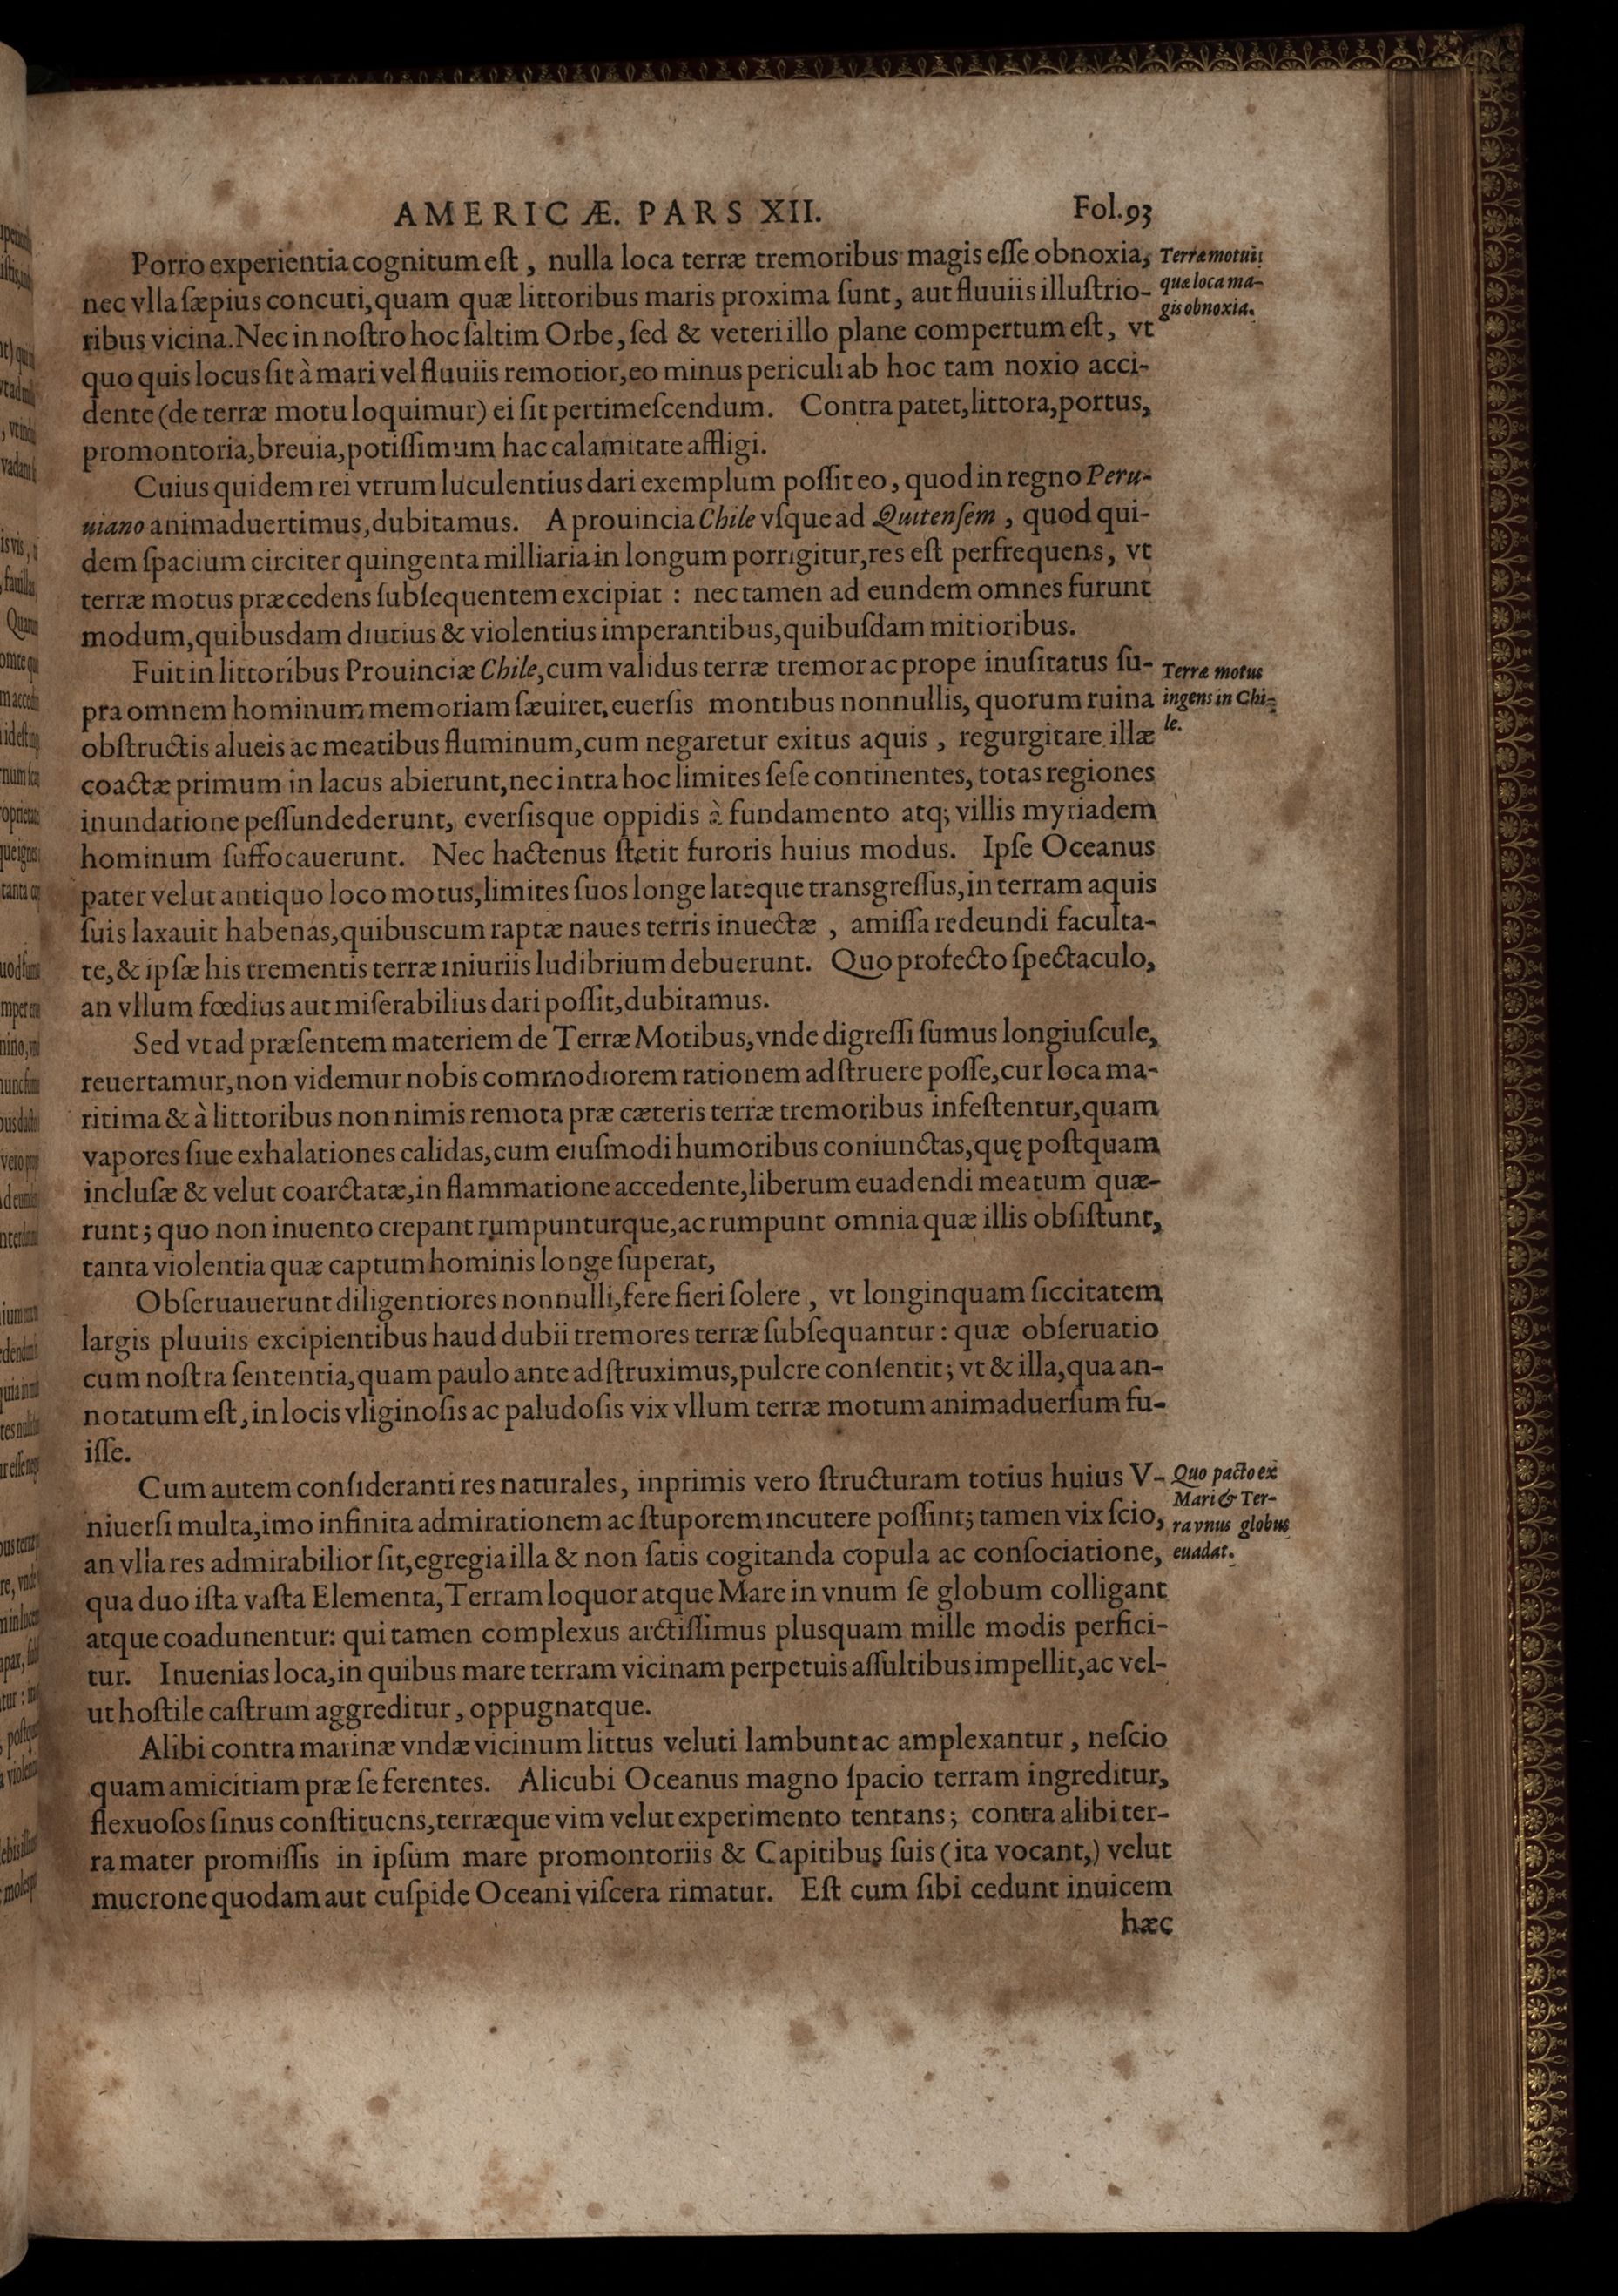 AMERICÆ. PARS XII.
Fol.93
Porro experientia cognitum eſt, nulla loca terræ tremoribus magis eſſe obnoxia,
nec vlla ſæpius concuti, quam quæ littoribus maris proxima ſunt, aut fluuiis illuſtrio-
ribus vicina. Nec in noſtro hoc ſaltim Orbe, ſed & veteri illo plane compertum eſt, vt
quo quis locus ſit à mari vel fluuiis remotior, eo minus periculi ab hoc tam noxio acci-
dente (de terræ motu loquimur) ei ſit pertimeſcendum. Contra patet, littora, portus,
promontoria, breuia, potiſſimum hac calamitate affligi.
Terræ motui
quæ loca ma-
gis obnoxia.
Cuius quidem rei vtrum luculentius dari exemplum poſſit eo, quod in regno Peru-
uiano animaduertimus, dubitamus. A prouincia Chile vſque ad Quitenſem, quod qui-
dem ſpacium circiter quingenta milliaria in longum porrigitur, res eſt perfrequens, vt
terræ motus præcedens ſubſequentem excipiat : nec tamen ad eundem omnes furunt
modum, quibusdam diutius & violentius imperantibus, quibuſdam mitioribus.
Fuit in littoribus Prouinciæ Chile, cum validus terræ tremor ac prope inuſitatus ſu-
pra omnem hominum memoriam ſæuiret, euerſis montibus nonnullis, quorum ruina
obſtructis alueis ac meatibus fluminum, cum negaretur exitus aquis, regurgitare illæ
coactæ primum in lacus abierunt, nec intra hoc limites ſeſe continentes, totas regiones
inundatione peſſundederunt, everſisque oppidis à fundamento atq; villis myriadem
hominum ſuffocauerunt. Nec hactenus ſtetit furoris huius modus. Ipſe Oceanus
pater velut antiquo loco motus, limites ſuos longe lateque transgreſſus, in terram aquis
ſuis laxauit habenas, quibuscum raptæ naues terris inuectæ, amiſſa redeundi faculta-
te, & ipſæ his trementis terræ iniuriis ludibrium debuerunt. Quo profecto ſpectaculo,
an vllum fœdius aut miſerabilius dari poſſit, dubitamus.
Terræ motus
ingens in Chi-
le.
Sed vt ad præſentem materiem de Terræ Motibus, vnde digreſſi ſumus longiuſcule,
reuertamur, non videmur nobis commodiorem rationem adſtruere poſſe, cur loca ma-
ritima & à littoribus non nimis remota præ cæteris terræ tremoribus infeſtentur, quam
vapores ſiue exhalationes calidas, cum eiuſmodi humoribus coniunctas, quę poſtquam
incluſæ & velut coarctatæ, in flammatione accedente, liberum euadendi meatum quæ-
runt; quo non inuento crepant rumpunturque, ac rumpunt omnia quæ illis obſiſtunt,
tanta violentia quæ captum hominis longe ſuperat,
Obſeruauerunt diligentiores nonnulli, fere fieri ſolere, vt longinquam ſiccitatem
largis pluuiis excipientibus haud dubii tremores terræ ſubſequantur : quæ obſeruatio
cum noſtra ſententia, quam paulo ante adſtruximus, pulcre conſentit; vt & illa, qua an-
notatum eſt, in locis vliginoſis ac paludoſis vix vllum terræ motum animaduerſum fu-
iſſe.
Cum autem conſideranti res naturales, inprimis vero ſtructuram totius huius V-
niuerſi multa, imo infinita admirationem ac ſtuporem incutere poſſint; tamen vix ſcio,
an vlla res admirabilior ſit, egregia illa & non ſatis cogitanda copula ac conſociatione,
qua duo iſta vaſta Elementa, Terram loquor atque Mare in vnum ſe globum colligant
atque coadunentur: qui tamen complexus arctiſſimus plusquam mille modis perfici-
tur. Inuenias loca, in quibus mare terram vicinam perpetuis aſſultibus impellit, ac vel-
ut hoſtile caſtrum aggreditur, oppugnatque.
Quo pacto ex
Mari & Ter-
ra vnus globus
euadat.
Alibi contra marinæ vndæ vicinum littus veluti lambunt ac amplexantur, neſcio
quam amicitiam præ ſe ferentes. Alicubi Oceanus magno ſpacio terram ingreditur,
flexuoſos ſinus conſtituens, terræque vim velut experimento tentans; contra alibi ter-
ra mater promiſſis in ipſum mare promontoriis & Capitibus ſuis (ita vocant,) velut
mucrone quodam aut cuſpide Oceani viſcera rimatur. Eſt cum ſibi cedunt inuicem
hæc